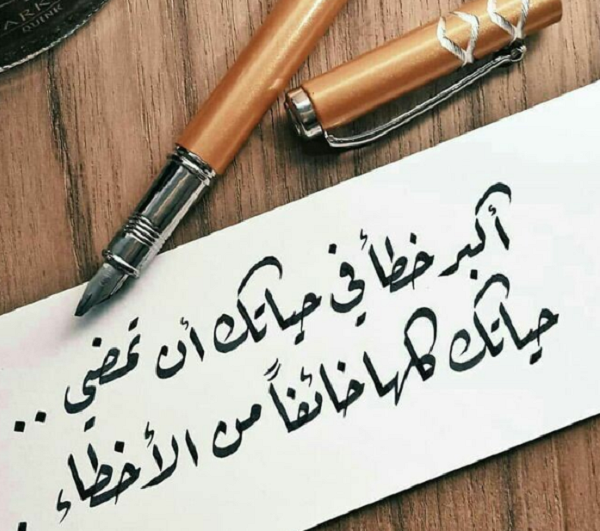 ARK
QUINK
أكبر خطأ في حياتك أن تمضي ..
حياتك كلها خائفاً من الأخطاء .